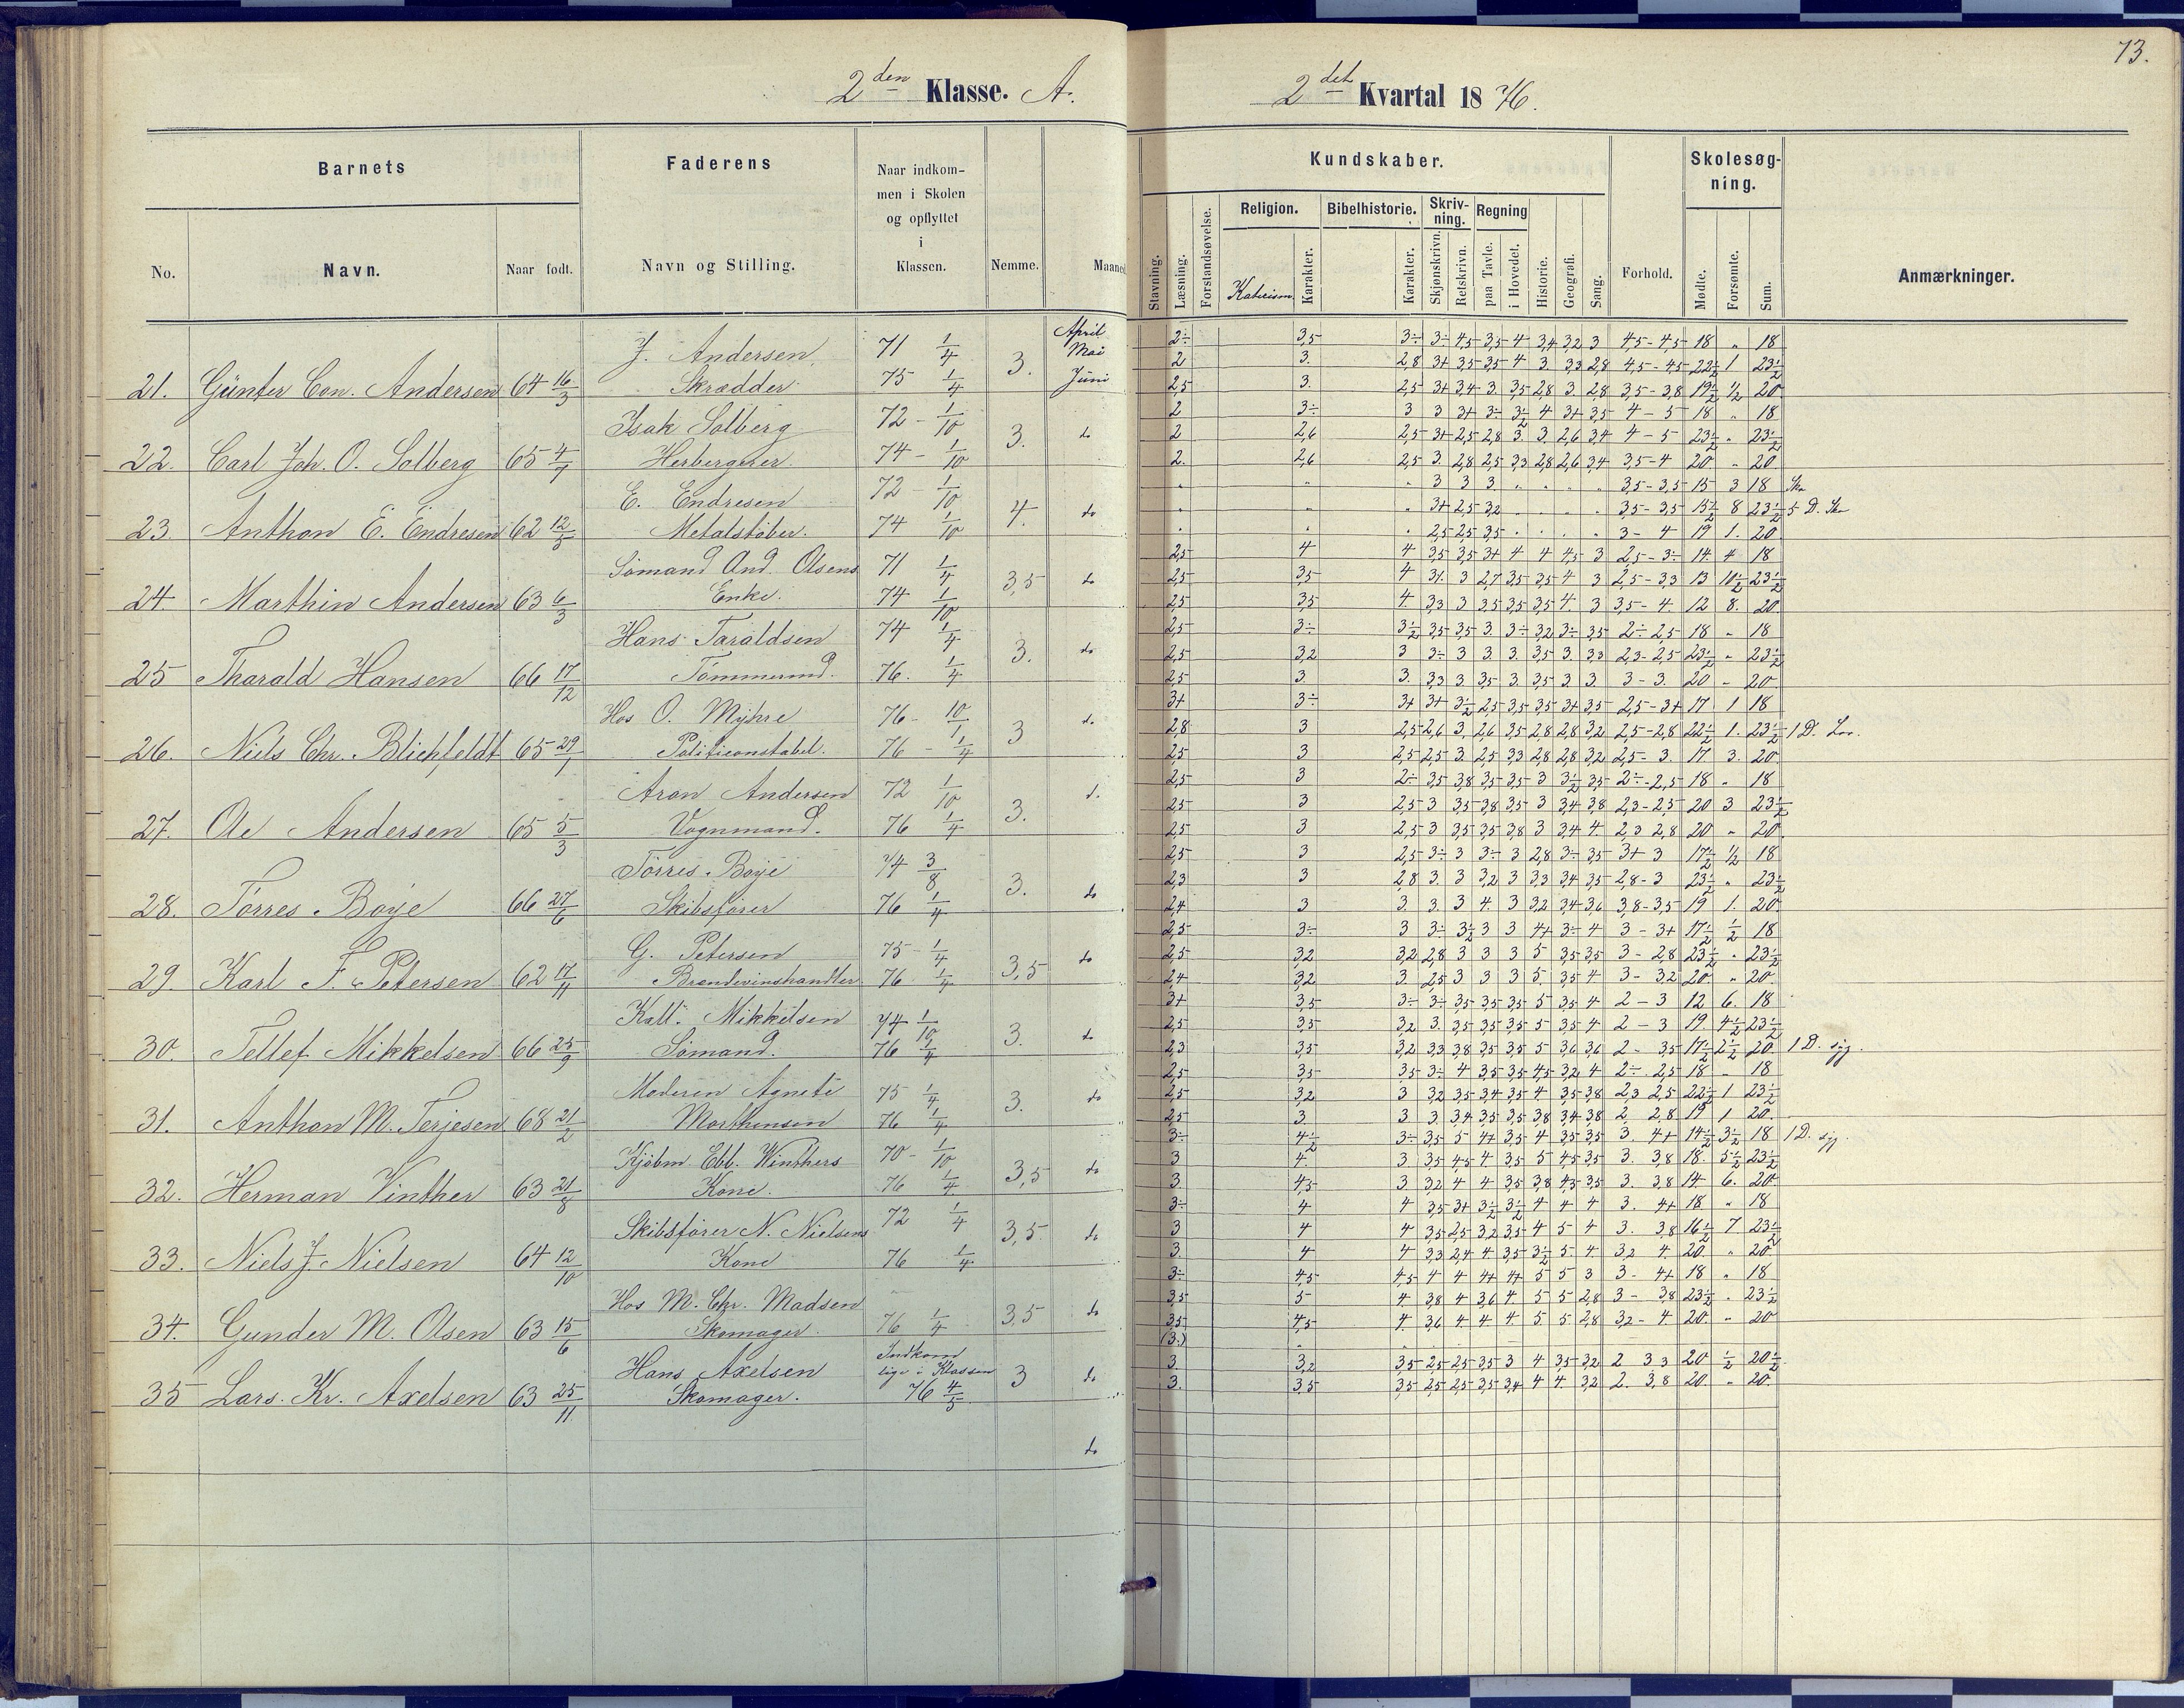 73.
2den Klasse. A.
2det Kvartal 1876.
Barnets
Faderens
Naar indkom-
men i Skolen
og opflyttet
i
Klassen.
No.
Navn.
Naar født.
Navn og Stilling.
Nemme.
Maaned
Kundskaber.
Skolesøg-
ning.
Stavning.
Læsning.
Forstandsøvelse.
Religion.
Bibelhistorie.
Skriv-
ning.
Regning
Karakter.
Karakter.
Skjønskrivn.
Retskrivn.
paa Tavle.
i Hovedet.
Historie.
Geografi.
Sang.
Forhold.
Mødte.
Forsømte.
Sum.
Anmærkninger.
April
Mai
Juni
J. Andersen 71 1/4 3.
21. Günter Con. Andersen 64 16/3 Skrædder 75 1/4
Isak Solberg 72 - 1/10 3. do
22. Carl Joh. O. Solberg 65 4/7 Herbergerer. 74 - 1/10
E. Endresen 72 - 1/10 4. do
23. Anthon E. Endresen 62 12/5 Metalstøber. 74 1/10
Sømand And. Olsens 71 1/4 3,5 do
24. Marthin Andersen 63 6/3 Enke. 74 1/10
Hans Taraldsen 74 1/4 3. do
25 Tharald Hansen 66 17/12 Tømmermd. 76. 1/4
Hos O. Myhre 76 - 10/1 3 do
26. Niels Chr. Blichfeldt 65 29/1 Politiconstabel. 76 - 1/4
Aron Andersen 72 1/10 3. d.
27. Ole Andersen 65 5/3 Vognmand. 76 1/4
Tørres Boye 74 3/8 3. do
28. Tørres Boye 66 27/6 Skibsfører 76 1/4
G. Petersen 75 - 1/4 3,5 do
29. Karl F. Petersen 62 17/11 Brændevinshandler 76 1/4
Kall. Mikkelsen 74 1/10 3. do
30. Tellef Mikkelsen 66 25/9 Sømand. 76 1/4
Moderen Agnete 75 1/4 3. do
31. Anthon M. Terjesen 68 21/2 Morthensen 76 1/4
Kjøbm. Ebb. Winthers 70 - 1/10 3,5 do
32. Herman Vinther 63 21/8 Kone. 76 1/4
Skibsfører N. Nielsens 72 1/4 3,5. do
33. Niels J. Nielsen 64 12/10 Kone 76 1/4
Hos M. Chr. Madsen 3,5 do
34. Gunder M. Olsen 63 15/6 Skomager. 76 1/4
Hans Axelsen Indkom
lige i Klassen 3 do
35 Lars. Kr. Axelsen 63 25/11 Skomager. 76 4/5
do
2÷ 3,5 3÷ 3÷ 4,5 3,5 4 3,4 3,2 3 4,5 - 4,5 18 „ 18
2 3 2,8 3+ 3,5 3,5 4 3. 3,3 2,8 4,5 - 4,5 22½ 1 23½
2,5 3. 2,5 3+ 3,4 3. 3,5 2,8 3. 2,8 3,5 - 3,8 19½ ½ 20.
2 3÷ 3 3 3+ 3÷ 3½ 4 3+ 3,5 4 - 5 18 „ 18
2 2,6 2,5 3+ 2,5 2,8 3. 3. 2,6 3,4 4 - 5 23½ „ 23½
2. 2,6 2,5 3. 2,8 2,5 3,3 2,8 2,6 3,4 3,5 - 4 20 „ 20
„ „ „ 3 3 3 „ „ „ „ 3,5 - 3,5 15 3 18
„ „ „ 3+ 2,5 3,2 „ „ „ „ 3,5 - 3,5 15½ 8 23½ 5 D.
„ „ „ 2,5 2,5 3,5 „ „ „ „ 3 - 4 19 1. 20
2,5 4 4 3,5 3,5 3+ 4 4 4,5 3 2,5 - 3÷ 14 4 18
2,5 3,5 4 3 2,7 3,5 3,5 4 3 2,5 - 3,3 13 10½ 23½
2,5 3,5 4. 3,3 3 3,5 3,5 3,5 4. 3 3,5 - 4. 12 8. 20
2,5 3÷ 3½ 3,5 3,5 3. 3÷ 3,2 3÷ 3,5 2÷ 2,5 18 „ 18
2,5 3,2 3 3÷ 3 3. 3. 3,5 3. 3,3 2,3 - 2,5 23½ „ 23½
2,5 3. 3. 3,3 3 3,5 3. 3,5 3. 3. 3 - 3. 20 „ 20
3+ 3÷ 3+ 3+ 3½ 2,5 3,5 3,5 3+ 3,5 2,5 - 3+ 17 1 18
2,8 3 2,5 2,6 3. 2,6 3,5 2,8 2,8 3,2 2,5 - 2,8 22½ 1. 23½ 1 D.
2,5 3 2,5 2,5 3. 2,5 3,3 2,8 2,8 3,2 2,5 - 3. 17 3. 20
2,5 3 2÷ 3,5 3,8 3,5 3,5 3 3½ 3,5 2÷ - 2,5 18 „ 18
2,5 3 2,5 3 3,5 3,8 3,5 3 3,4 3,8 2,3 - 2,5 20 3 23½
2,5 3 2,5 3 3,5 3,5 3,8 3 3,4 4 2,3 2,8 20 „ 20
2,5 3 2,5 3÷ 3 3÷ 3 2,8 3÷ 3,5 3+ 3 17½ ½ 18
2,3 3 2,8 3. 3 3,2 3 3,3 3,4 3,5 2,8 - 3 23½ „ 23½
2,4 3 3. 3. 3 4. 3 3,2 3,4 3,6 3,8 - 3,5 19 1. 20.
2,5 3÷ 3 3÷ 3½ 3 3 4+ 3÷ 4 3 - 3+ 17½ ½ 18
2,5 3,2 3,2 2,8 3 3 3 5 3,5 3,5 3 - 2,8 23½ „ 23½
2,4 3,2 3. 2,5 3 3 3 5. 3,5 4 3 - 3,2 20. „ 20.
3+ 3,5 3÷ 3÷ 3,5 3,5 3,5 5 3,5 4 2 - 3 12 6. 18
2,5 3,5 3,2 3. 3,5 3,5 3,5 5 3,5 4 2 - 3 19. 4½ 23½
2,3 3,5 3,2 3,3 3,8 3,5 3,5 5 3,6 3,6 2 - 3,5 17½ 2½ 20 1 D. syg.
2,5 3,5 3,5 3÷ 4 3,5 3,5 4,5 3,2 4 2÷ 2,5 18 „ 18
2,5 3,2 3 3,2 3,5 3,4 3,5 4 3,5 3,8 2,3 2,5 22½ 1 23½
2,5 3. 3 3 3,4 3,5 3,5 3,8 3,4 3,8 2 2,8 19 1 20
3÷ 4½ 3÷ 3,5 5 4+ 3,5 4 3,5 3,5 3. 4+ 14½ 3½ 18 1 D. syg.
3 4. 3 3,5 4,5 4. 3,5 5 4,5 3,5 3. 3,8 18. 5½ 23½
3. 4,5 3 3,2 4 4 3,5 3,8 4,3 3,5 3. 3,8 14 6. 20
3÷ 4 4 3,5 3+ 3½ 3½ 4 4 4 3. 4+ 18 „ 18
3 4 4 3,5 2,5 3,2 3,5 4 5 4 3. 3,8 16½ 7 23½
3. 4 4 3,3 2,4 4 3,5 3½ 5 4 3,2 4. 20. „ 20
3÷ 4,5 4,5 4 4 4+ 4+ 5 5 3 3 - 4+ 18 „ 18
3,5 5 4. 3,8 4 3,6 4 5 5 2,8 3 - 3,8 23½ „ 23½
3,5 4,5 4. 3,6 4 4 4 5 5 2,8 3,2 - 4 20 „ 20
(3.)
3. 3,2 3,5 2,5 2,5 3,5 3 4 3,5 3,2 2 3,3 20 ½ 20½
3. 3,5 3,5 2,5 2,5 3,5 3,4 4 4. 3,2 2. 3,8 20. „ 20.